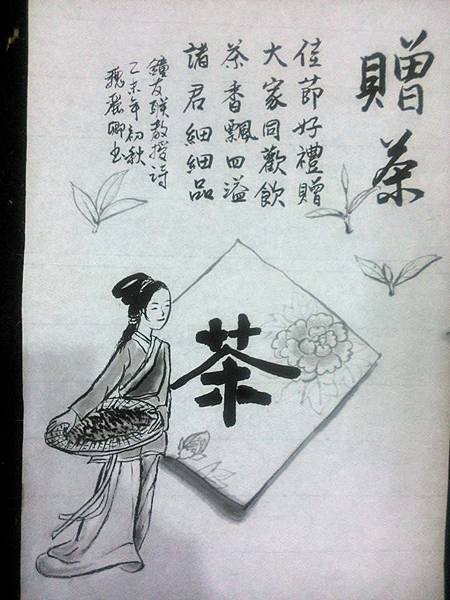 贈茶
佳節好禮贈
大家同歡飲
茶香飄四溢
諸君細細品
鐘友聯教授詩
乙未年初秋
魏麗卿书
茶